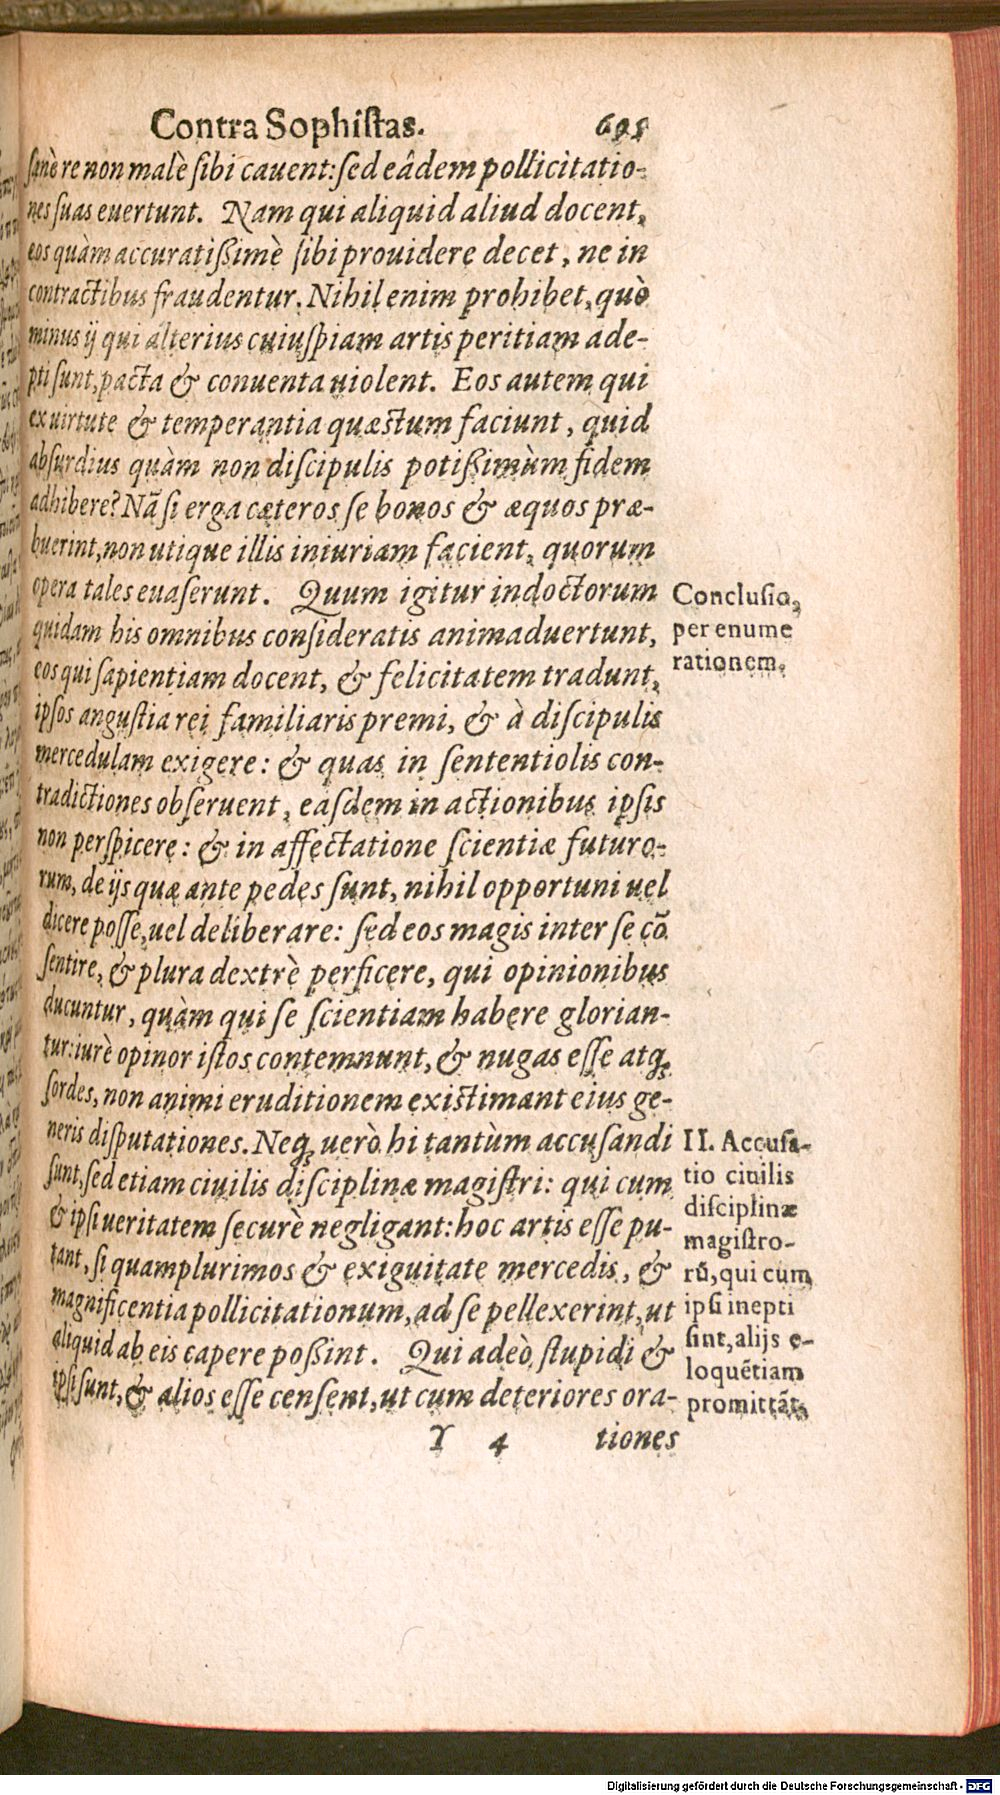 Contra Sophiſtas. 695
ſanè re non malè ſibi cauent: ſed eâdem pollicitatio-
nes ſuas euertunt. Nam qui aliquid aliud docent,
eos quàm accuratißimè ſibi prouidere decet, ne in
contractibus fraudentur. Nihil enim prohibet, quò
minus ij qui alterius cuiuſpiam artis peritiam ade-
pti ſunt, pacta & conuenta uiolent. Eos autem qui
ex uirtute & temperantia quæstum faciunt, quid
abſurdius quàm non diſcipulis potißimùm fidem
adhibere? Nã ſi erga cæteros ſe bonos & æquos præ-
buerint, non utique illis iniuriam facient, quorum
opera tales euaſerunt. Quum igitur indoctorum
quidam his omnibus conſideratis animaduertunt,
eos qui ſapientiam docent, & felicitatem tradunt,
ipſos anguſtia rei familiaris premi, & à diſcipulis
mercedulam exigere: & quas in ſententiolis con-
tradictiones obſeruent, eaſdem in actionibus ipſis
non perſpicere: & in affectatione ſcientiæ futuro-
rum, de ijs quæ ante pedes ſunt, nihil opportuni uel
dicere poſſe, uel deliberare: ſed eos magis inter ſe cõ
ſentire, & plura dextrè perficere, qui opinionibus
ducuntur, quàm qui ſe ſcientiam habere glorian-
tur: iurè opinor iſtos contemnunt, & nugas eſſe atq;
ſordes, non animi eruditionem existimant eius ge-
neris diſputationes. Neq; uerò hi tantùm accuſandi
ſunt, ſed etiam ciuilis diſciplinæ magiſtri: qui cum
& ipſi ueritatem ſecurè negligant: hoc artis eſſe pu-
tant, ſi quamplurimos & exiguitate mercedis, &
magnificentia pollicitationum, ad ſe pellexerint, ut
aliquid ab eis capere poßint. Qui adeò ſtupidi &
ipſi ſunt, & alios eſſe cenſent, ut cum deteriores ora-
Y 4 tiones
Concluſio,
per enume
rationem.
II. Accuſa-
tio ciuilis
diſciplinæ
magiſtro-
rũ, qui cum
ipſi inepti
ſint, alijs e-
loquẽtiam
promittãt.
Digitalisierung gefördert durch die Deutsche Forschungsgemeinschaft - DFG